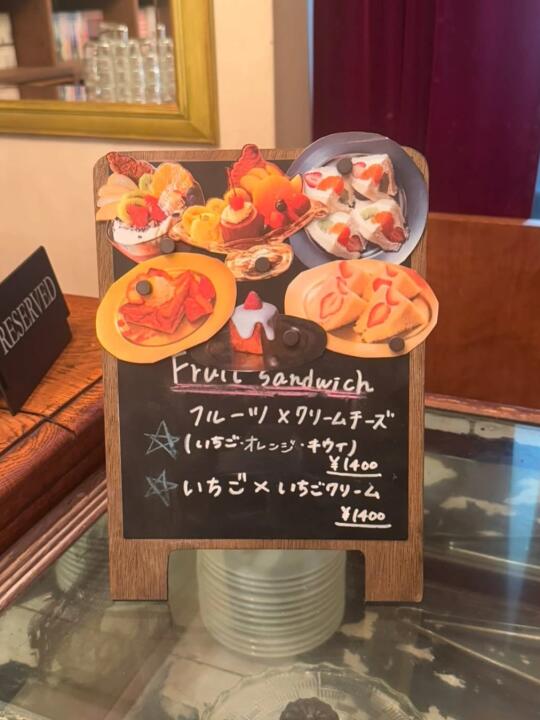 RESERVED
Fruit sandwich
フルーツ×クリームチーズ
(いちご・オレンジ・キウイ)
¥1400
☆ いちご×いちごクリーム
¥1400